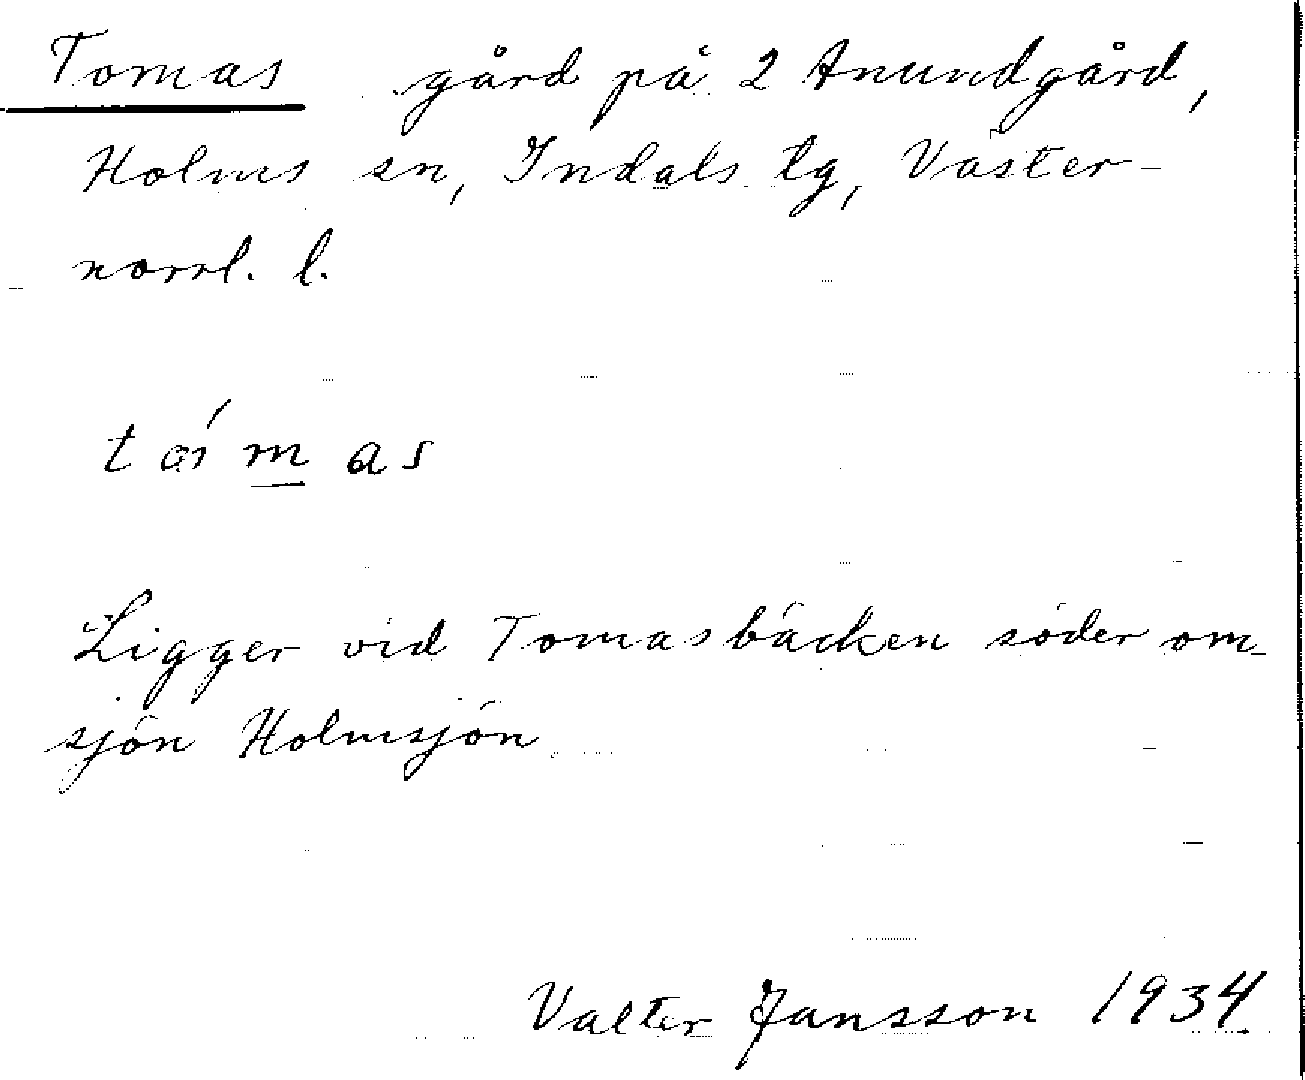 Tomas gård på 2 Anundgård,
Holms sn, Indals tg, Väster-
norrl. l.
Ligger vid Tomasbäcken söder om
sjön Holmsjön.
Valter Jansson 1934